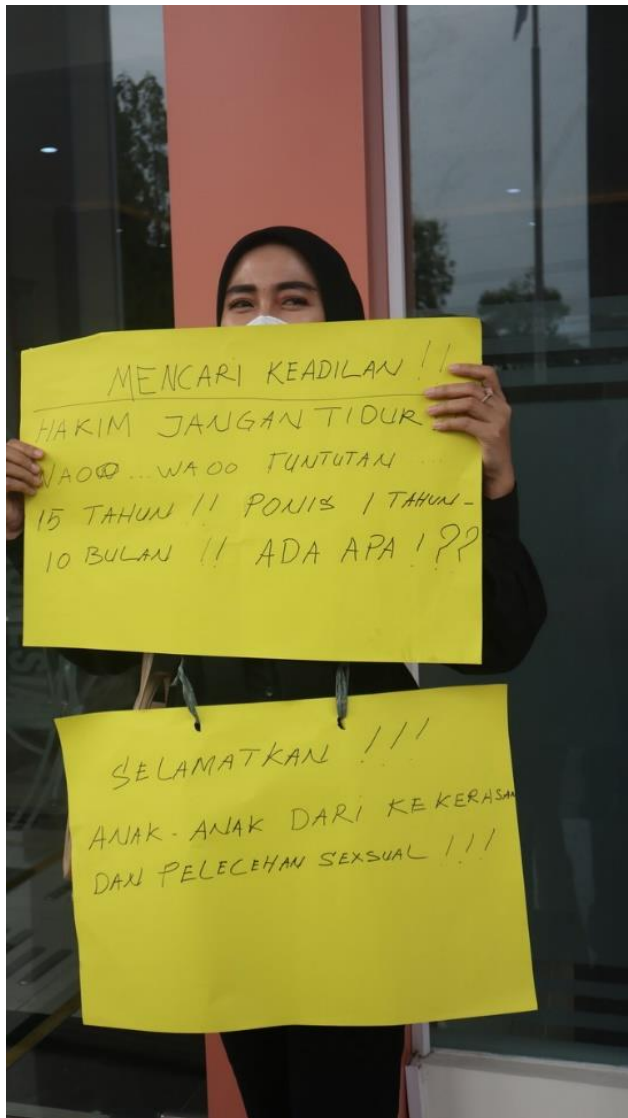 MENCARI KEADILAN !!
HAKIM JANGAN TIDUR
WAOO ... WAOO TUNTUTAN ...
15 TAHUN !! PONIS 1 TAHUN -
10 BULAN !! ADA APA !??
SELAMATKAN !!!
ANAK - ANAK DARI KEKERASAN
DAN PELECEHAN SEXSUAL !!!